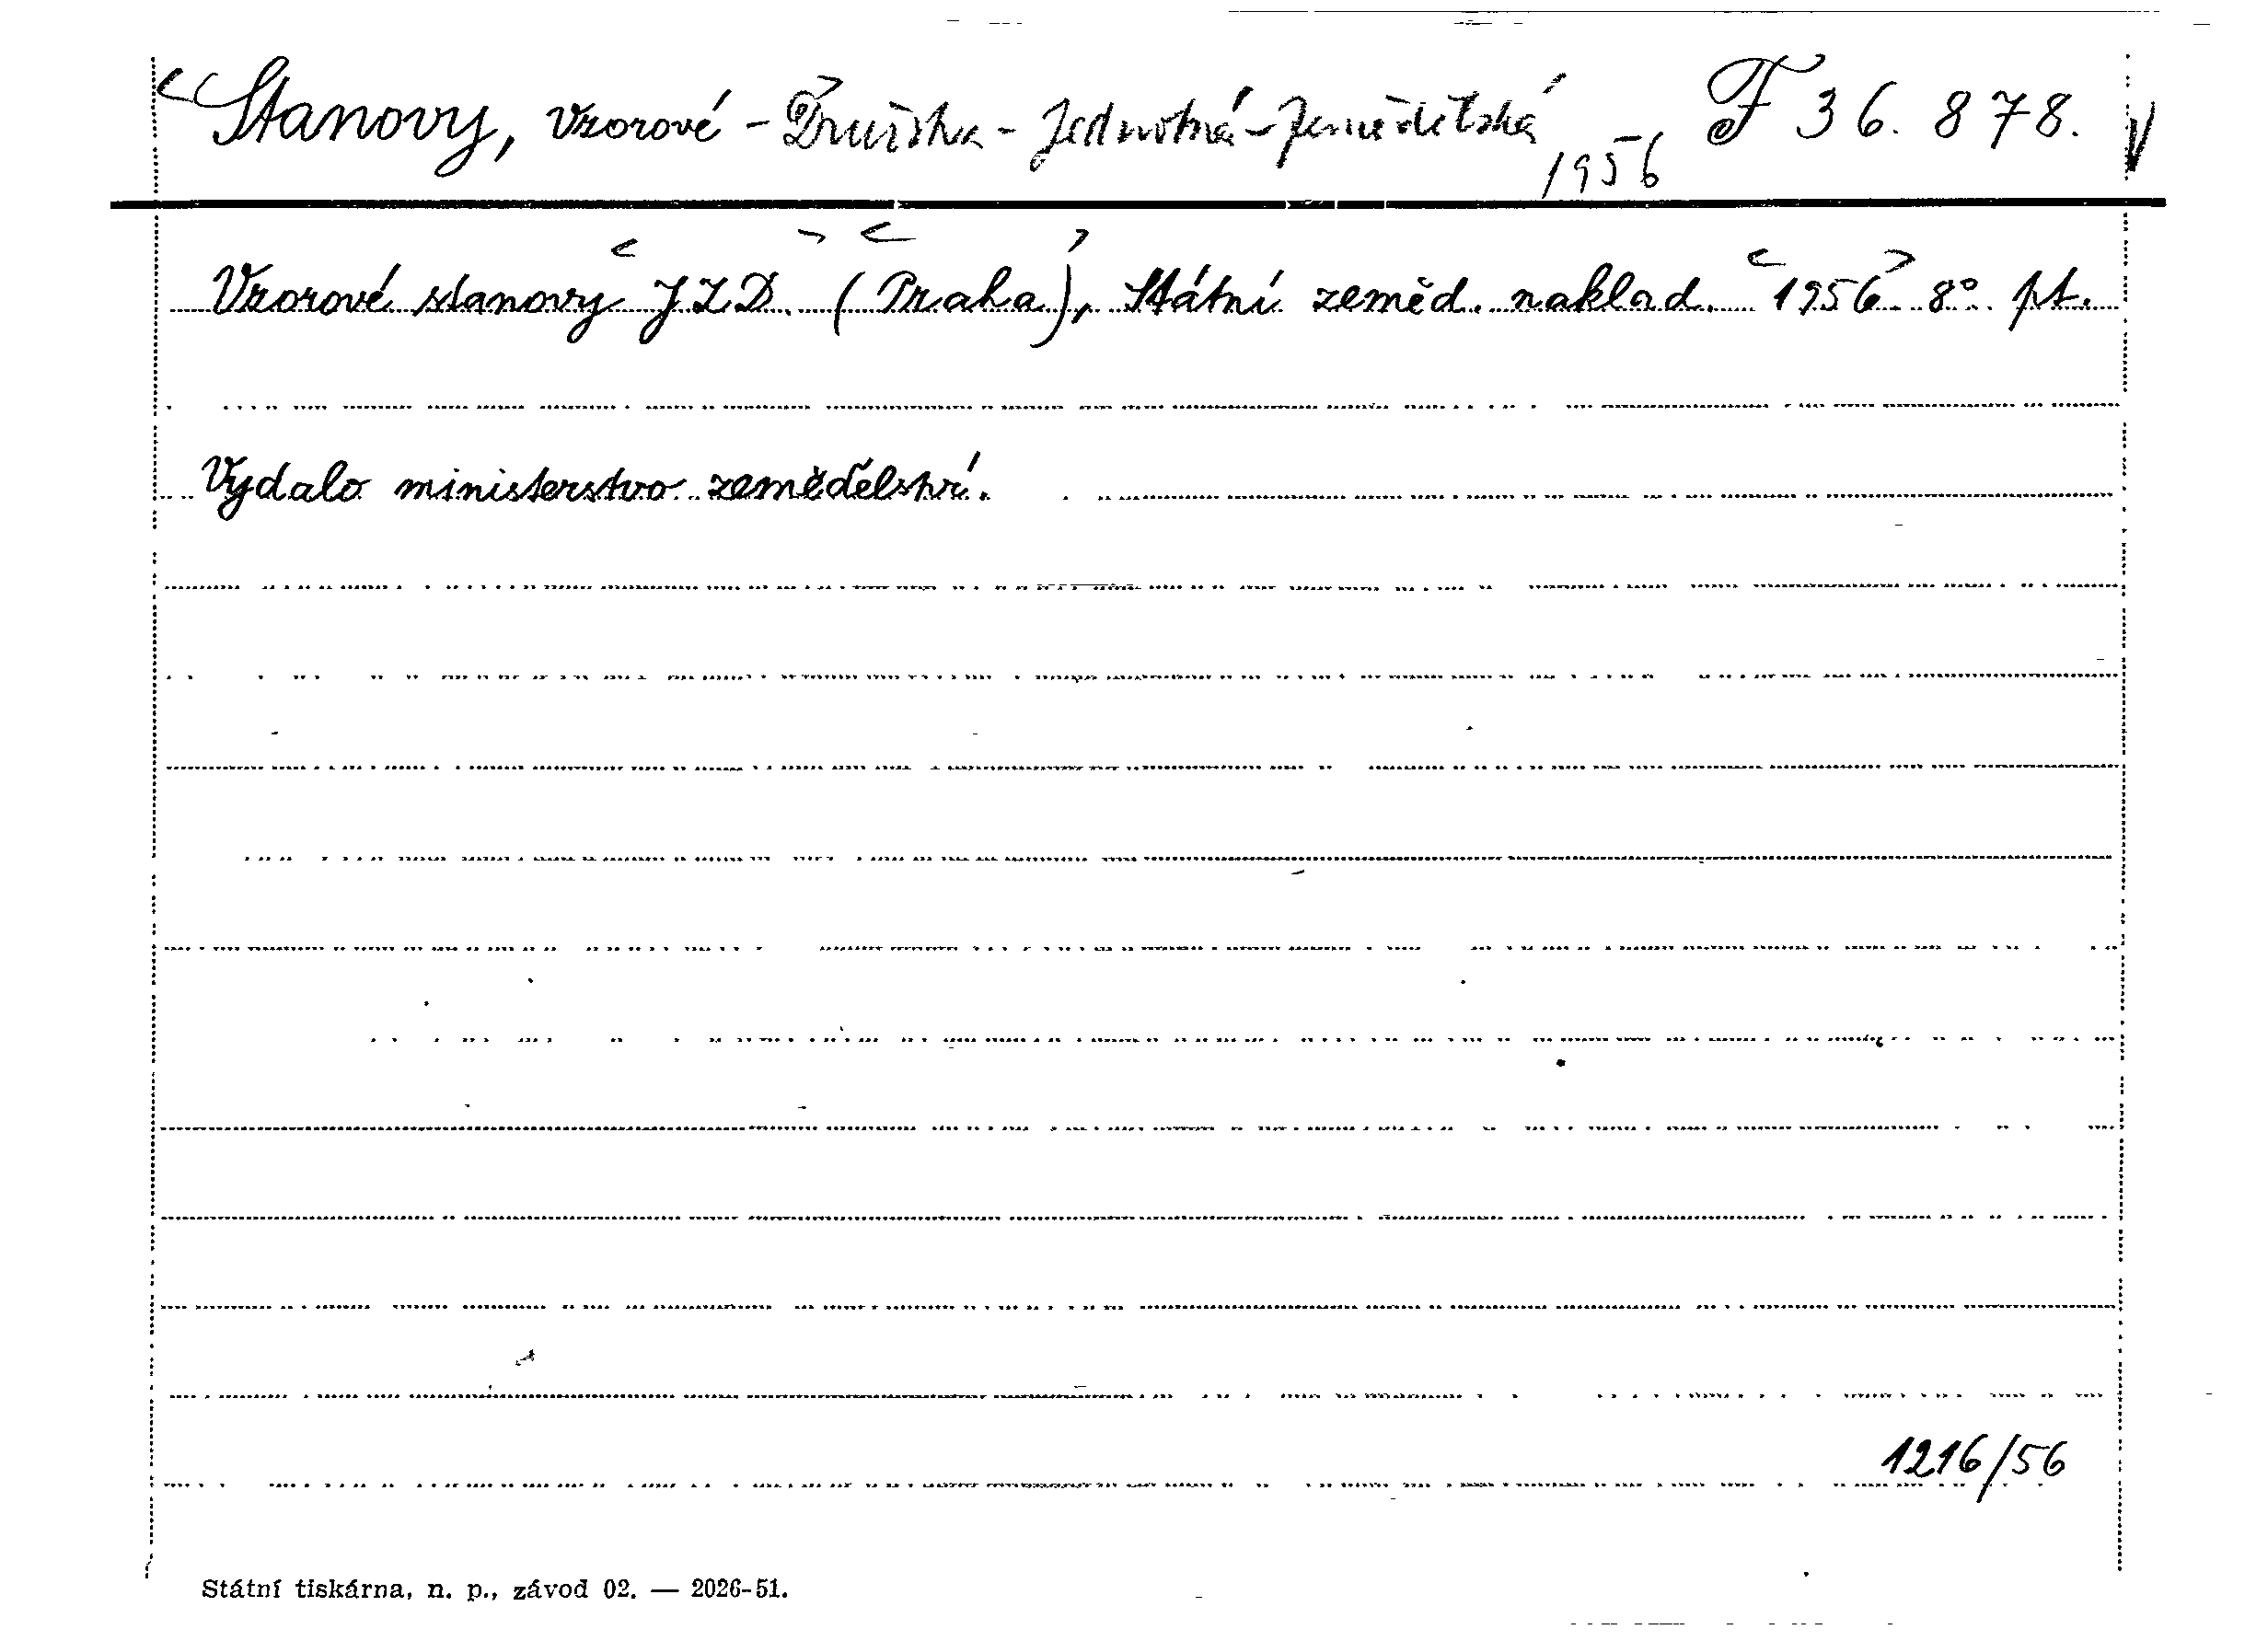 Stanovy, vzorové - Družstva - Jednotná - Zemědělská F 36.878.
1956
Vzorové stanovy JZD. (Praha), Státní zeměd. naklad. 1956. 8°. pt.
Vydalo ministerstvo zemědělství.
1216/56
Státní tiskárna, n. p., závod 02. — 2026-51.